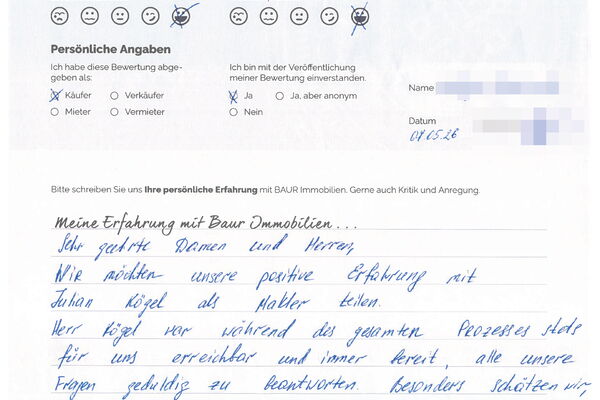 Persönliche Angaben
Ich habe diese Bewertung abge-
geben als:
Käufer Verkäufer
Mieter Vermieter
Ich bin mit der Veröffentlichung
meiner Bewertung einverstanden.
Ja Ja, aber anonym
Nein
Name
Datum
07.05.26
Bitte schreiben Sie uns Ihre persönliche Erfahrung mit BAUR Immobilien. Gerne auch Kritik und Anregung.
Meine Erfahrung mit Baur Immobilien...
Sehr geehrte Damen und Herren,
Wir möchten unsere positive Erfahrung mit
Julian Kögel als Makler teilen.
Herr Kögel war während des gesamten Prozesses stets
für uns erreichbar und immer bereit, alle unsere
Fragen geduldig zu beantworten. Besonders schätzen wir,